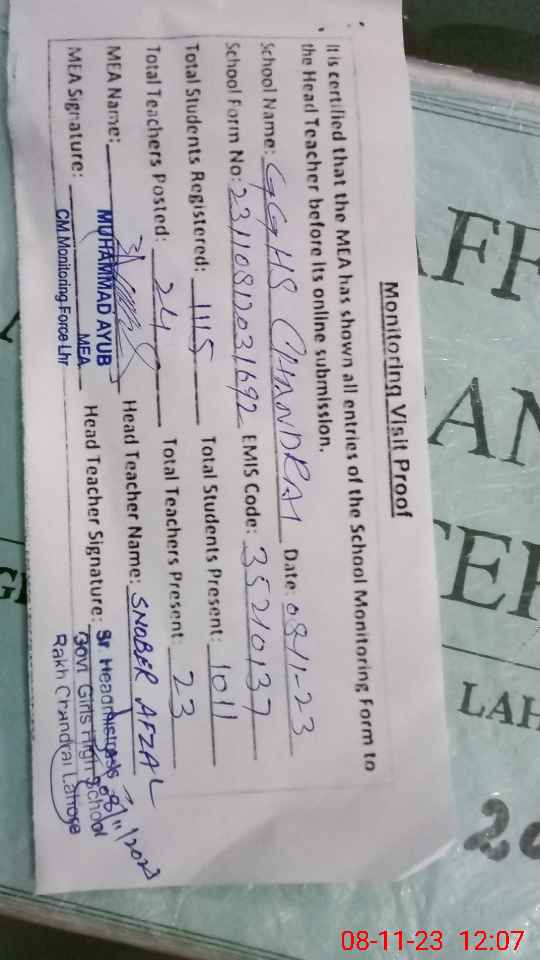 Monitoring Visit Proof
It is certified that the MEA has shown all entries of the School Monitoring Form to
the Head Teacher before its online submission.
School Name: GGHS CHANDRAI Date: 08-11-23
School Form No: 23110812031692 EMIS Code: 35210137
Total Students Registered: 1115 Total Students Present: 1011
Total Teachers Posted: 24 Total Teachers Present: 23
MEA Name: Head Teacher Name: SNOBER AFZAL
MUHAMMAD AYUB
MEA
CM Monitoring Force Lhr
MEA Signature: Head Teacher Signature:
Sr. Headmistress
Govt Girls High School
Rakh Chandrai Lahore
08/11/2023
AFF
AN
TER
LAH
08-11-23 12:07